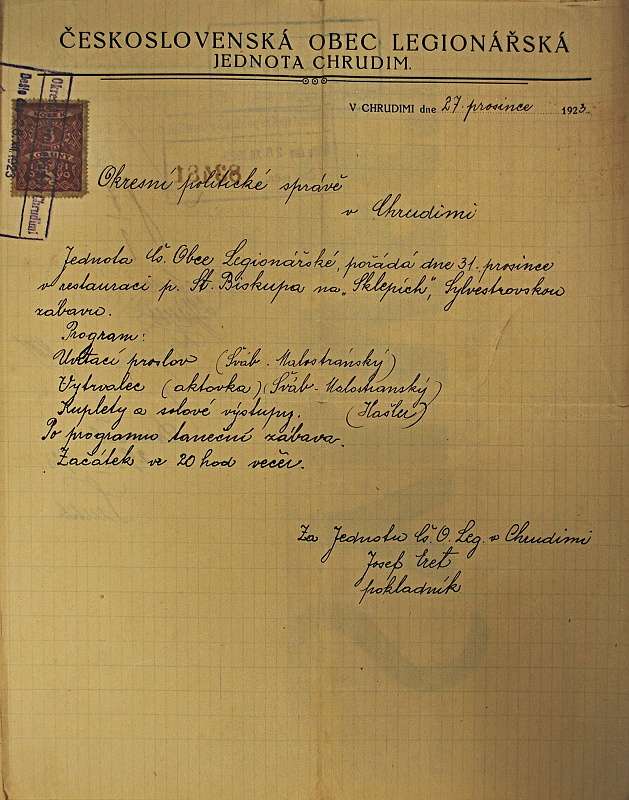 ČESKOSLOVENSKÁ OBEC LEGIONÁŘSKÁ
JEDNOTA CHRUDIM.
V CHRUDIMI dne 27. prosince 1923.
Okresní politické správě
v Chrudimi
Jednota Čs. Obce Legionářské, pořádá dne 31. prosince
v restauraci p. St. Biskupa na „Sklepích", Sylvestrovskou
zábavu.
Program:
Uvítací proslov (Šváb-Malostranský)
Vytrvalec (aktovka) (Šváb-Malostranský)
Kuplety a solové výstupy. (Hašler)
Po programu taneční zábava.
Začátek ve 20 hod večer.
Za Jednotu Čs. O. Leg. v Chrudimi
Josef
pokladník